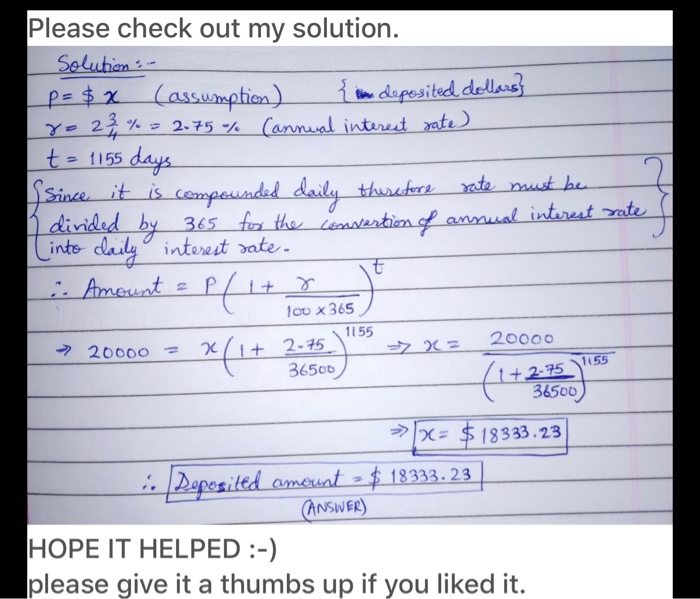 Please check out my solution.
Solution :-
P = $ x (assumption) { deposited dollars}
r = 2 3/4 % = 2.75 % (annual interest rate)
t = 1155 days
{Since it is compounded daily therefore rate must be
divided by 365 for the convertion of annual interest rate
into daily interest rate. }
∴ Amount = P(1 + r/(100 × 365))^t
⇒ 20000 = x(1 + 2.75/36500)^1155 ⇒ x = 20000/(1 + 2.75/36500)^1155
⇒ x = $ 18333.23
∴ Deposited amount = $ 18333.23
(ANSWER)
HOPE IT HELPED :-)
please give it a thumbs up if you liked it.